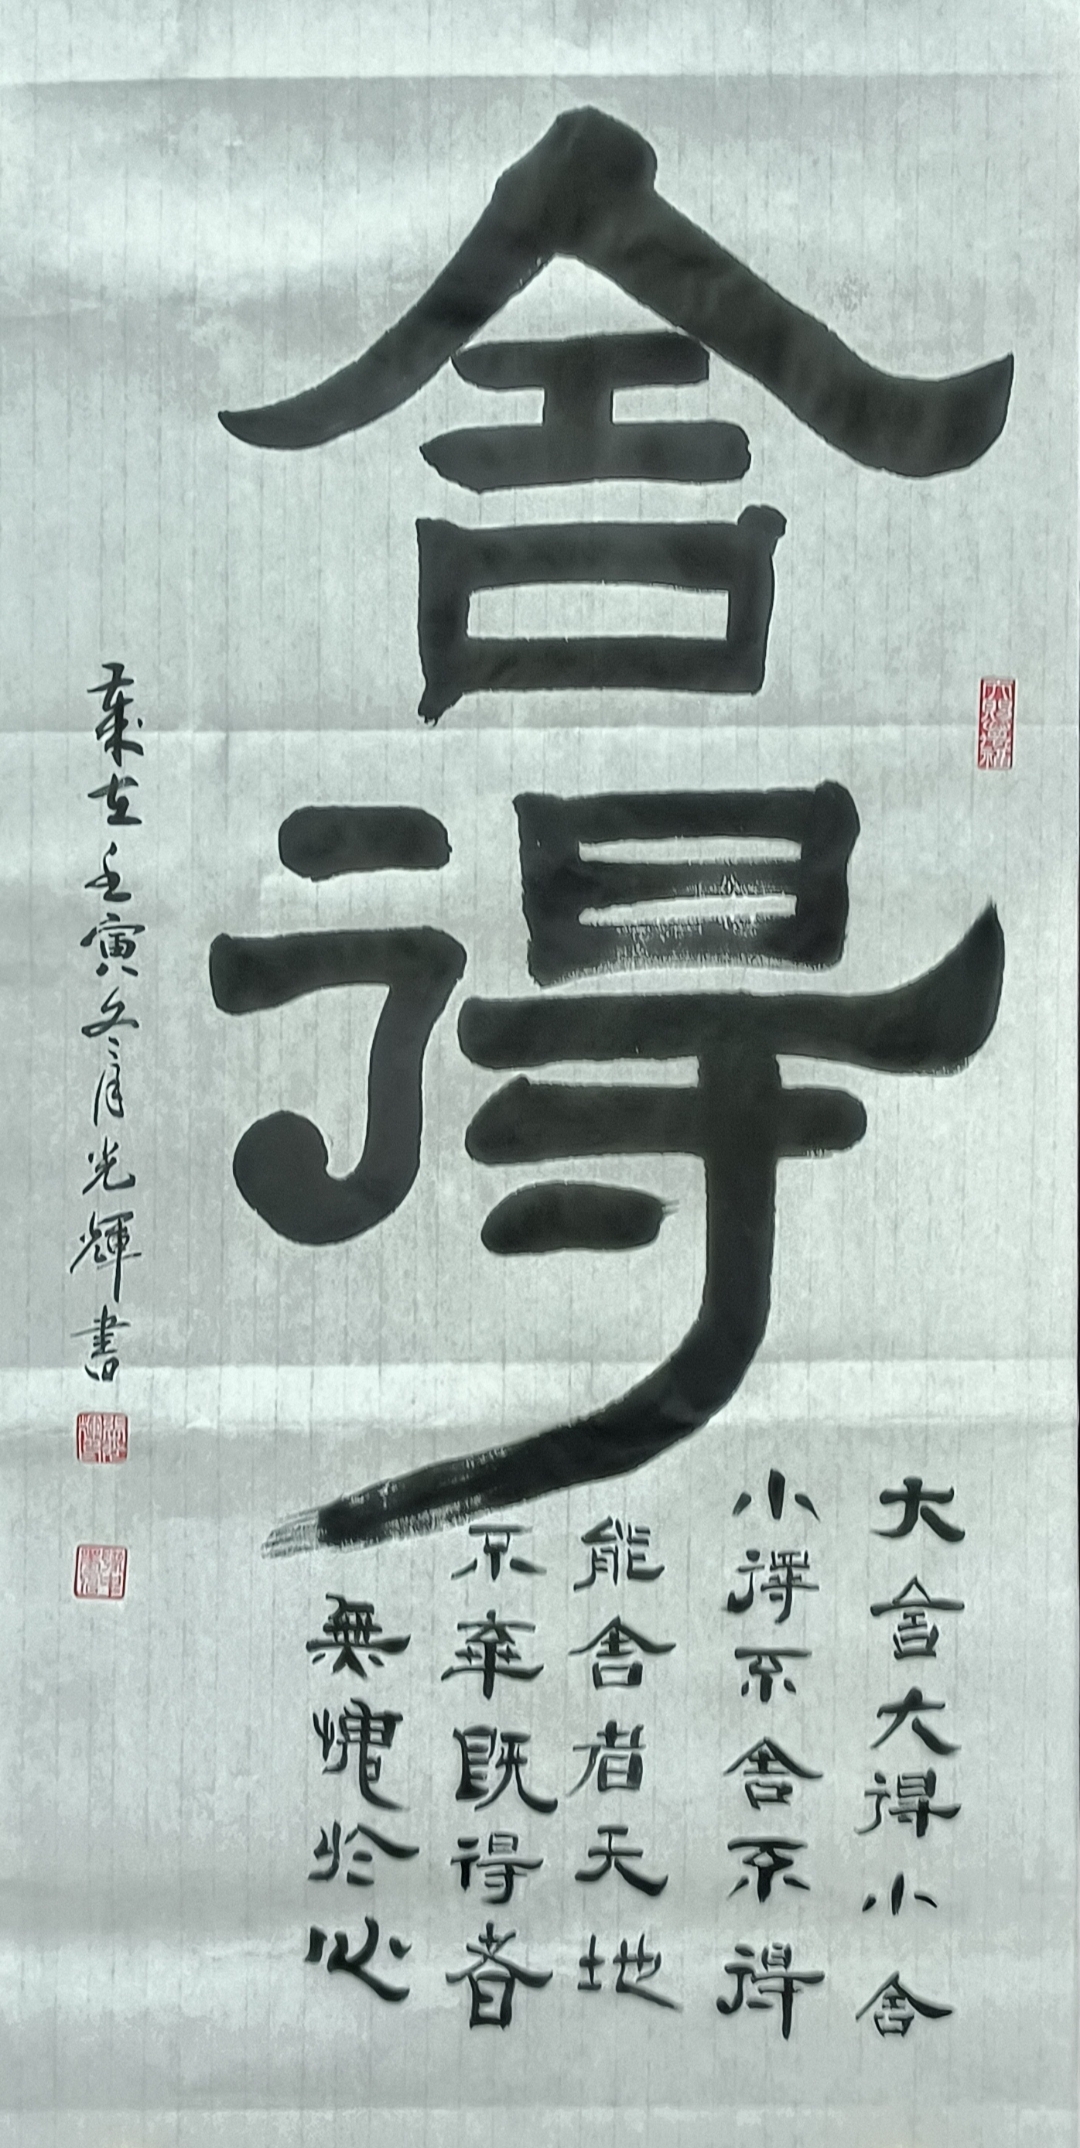 舍得
大舍大得小舍
小得不舍不得
能舍者天地
不牵既得者
無愧於心
歲在壬寅冬月光輝書